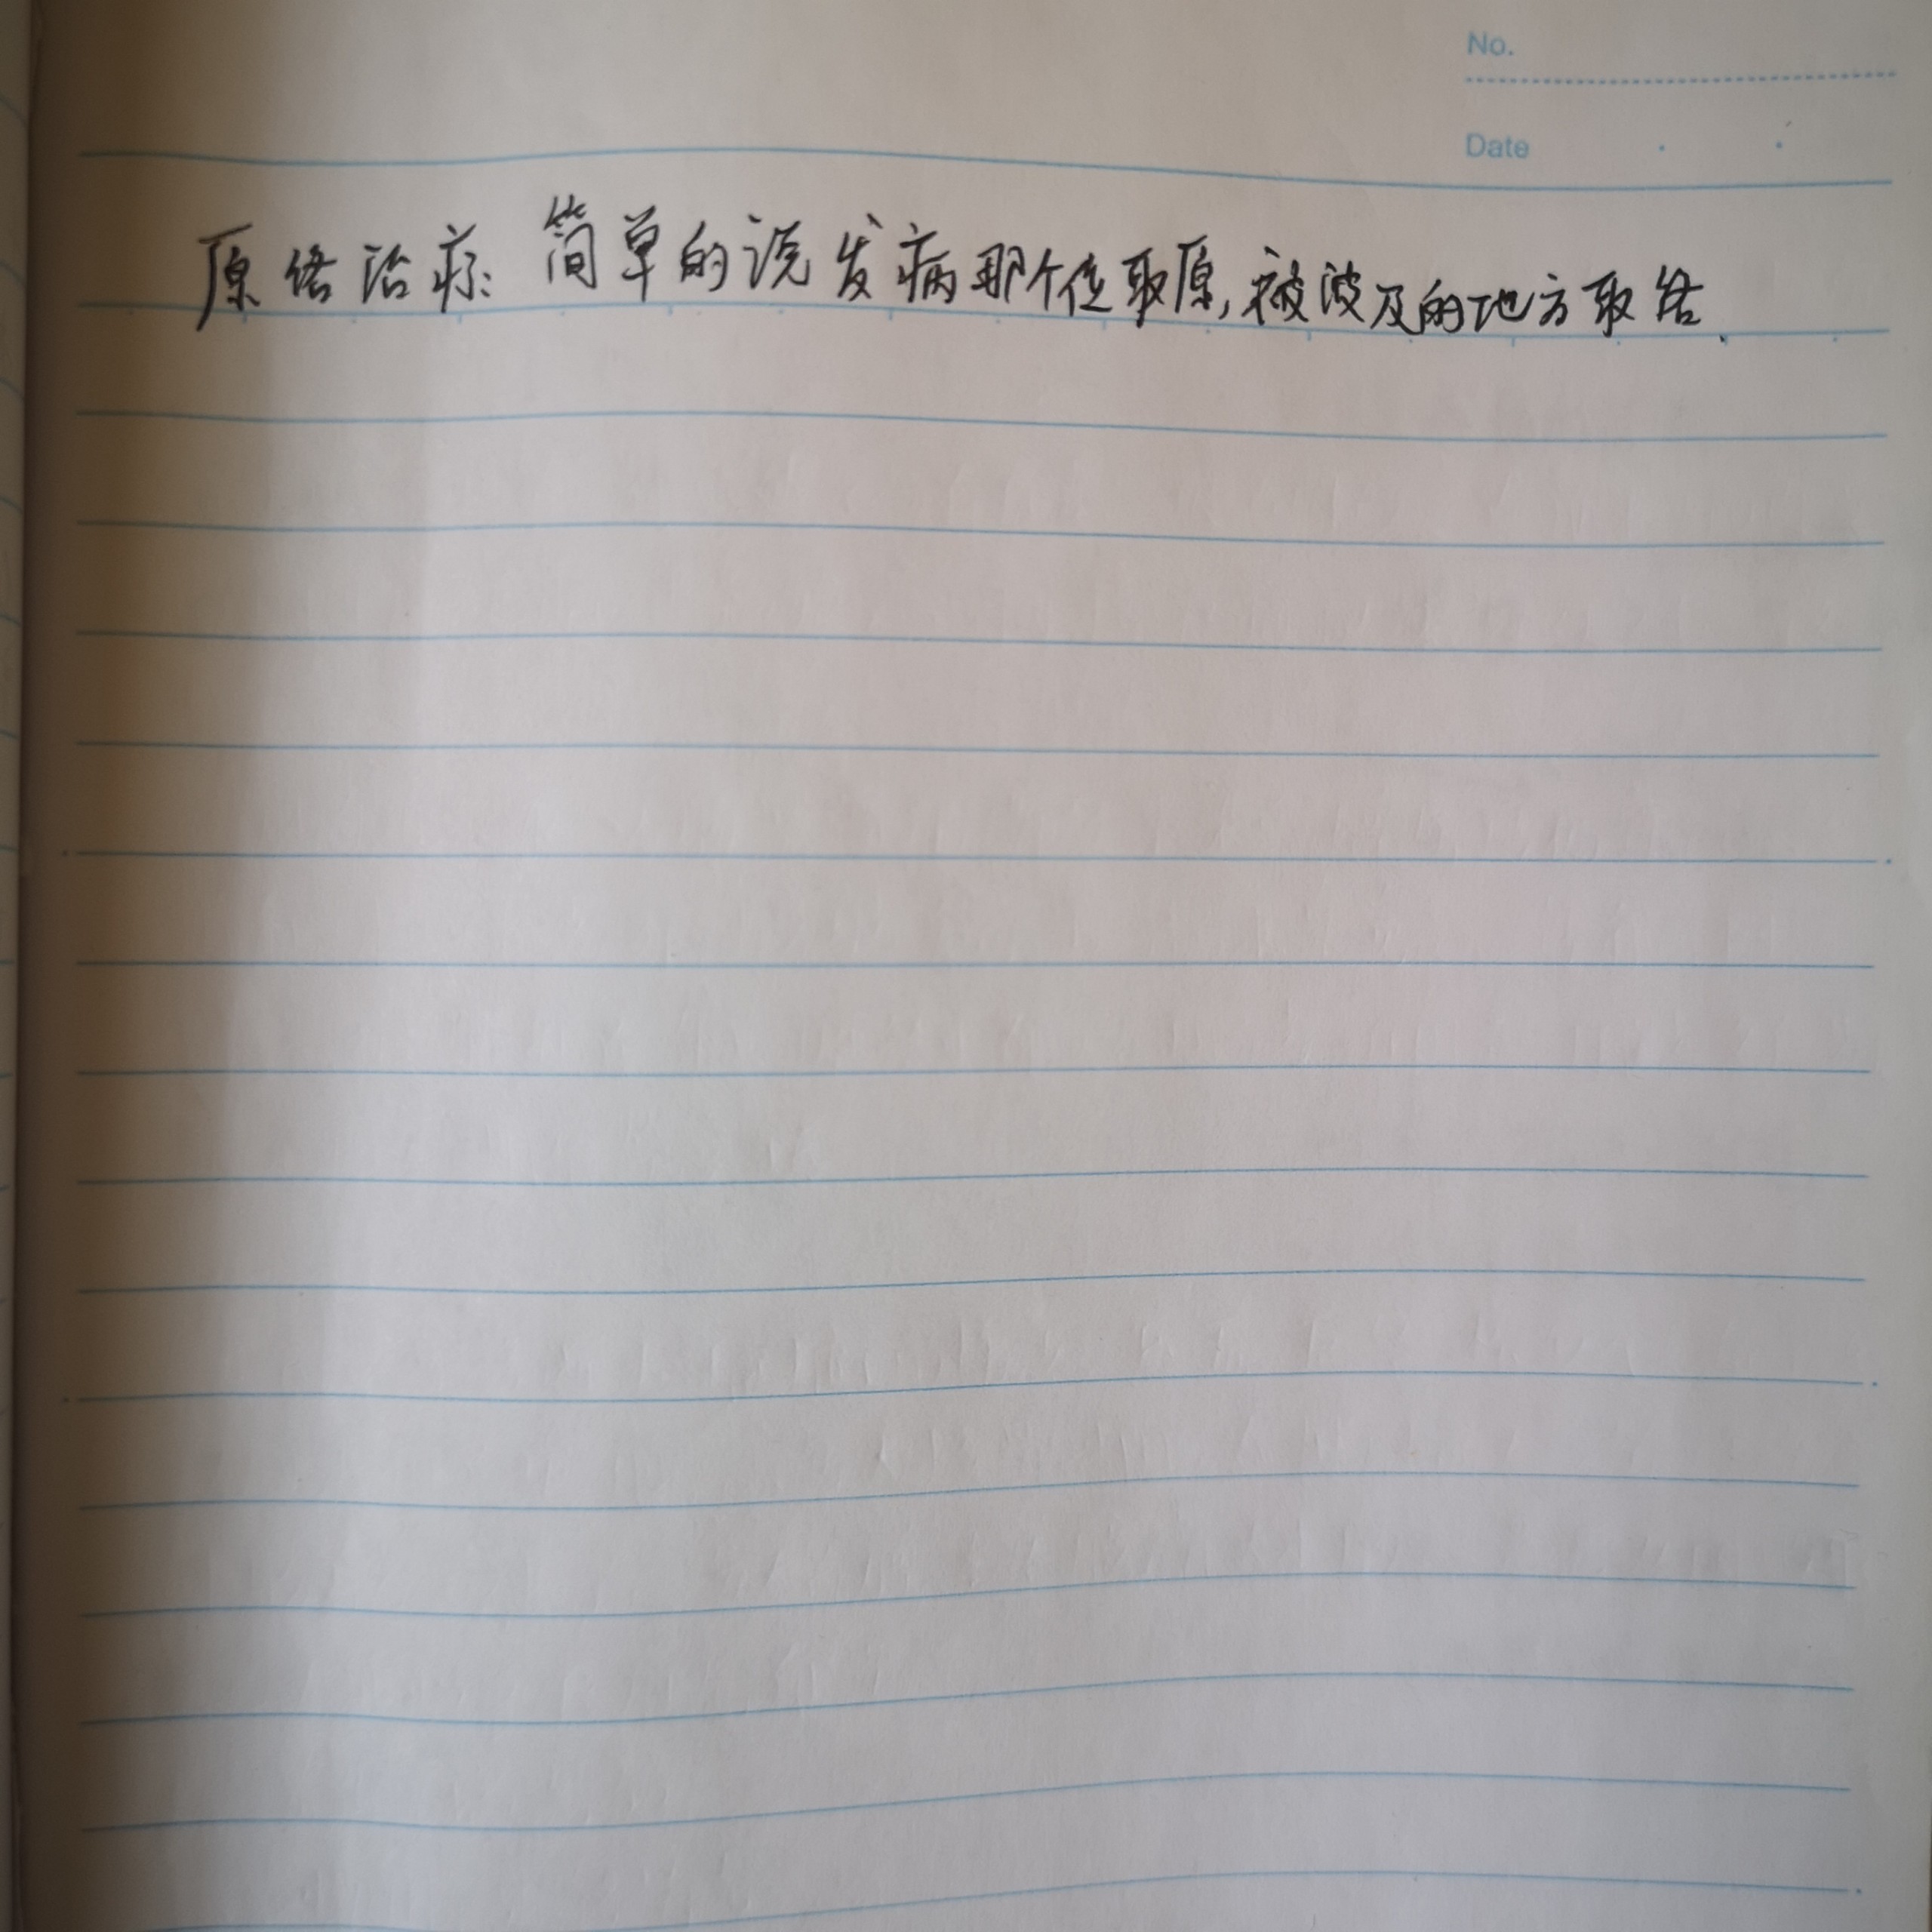 No.
Date
原络治疗: 简单的说发病那个位取原,被波及的地方取络.